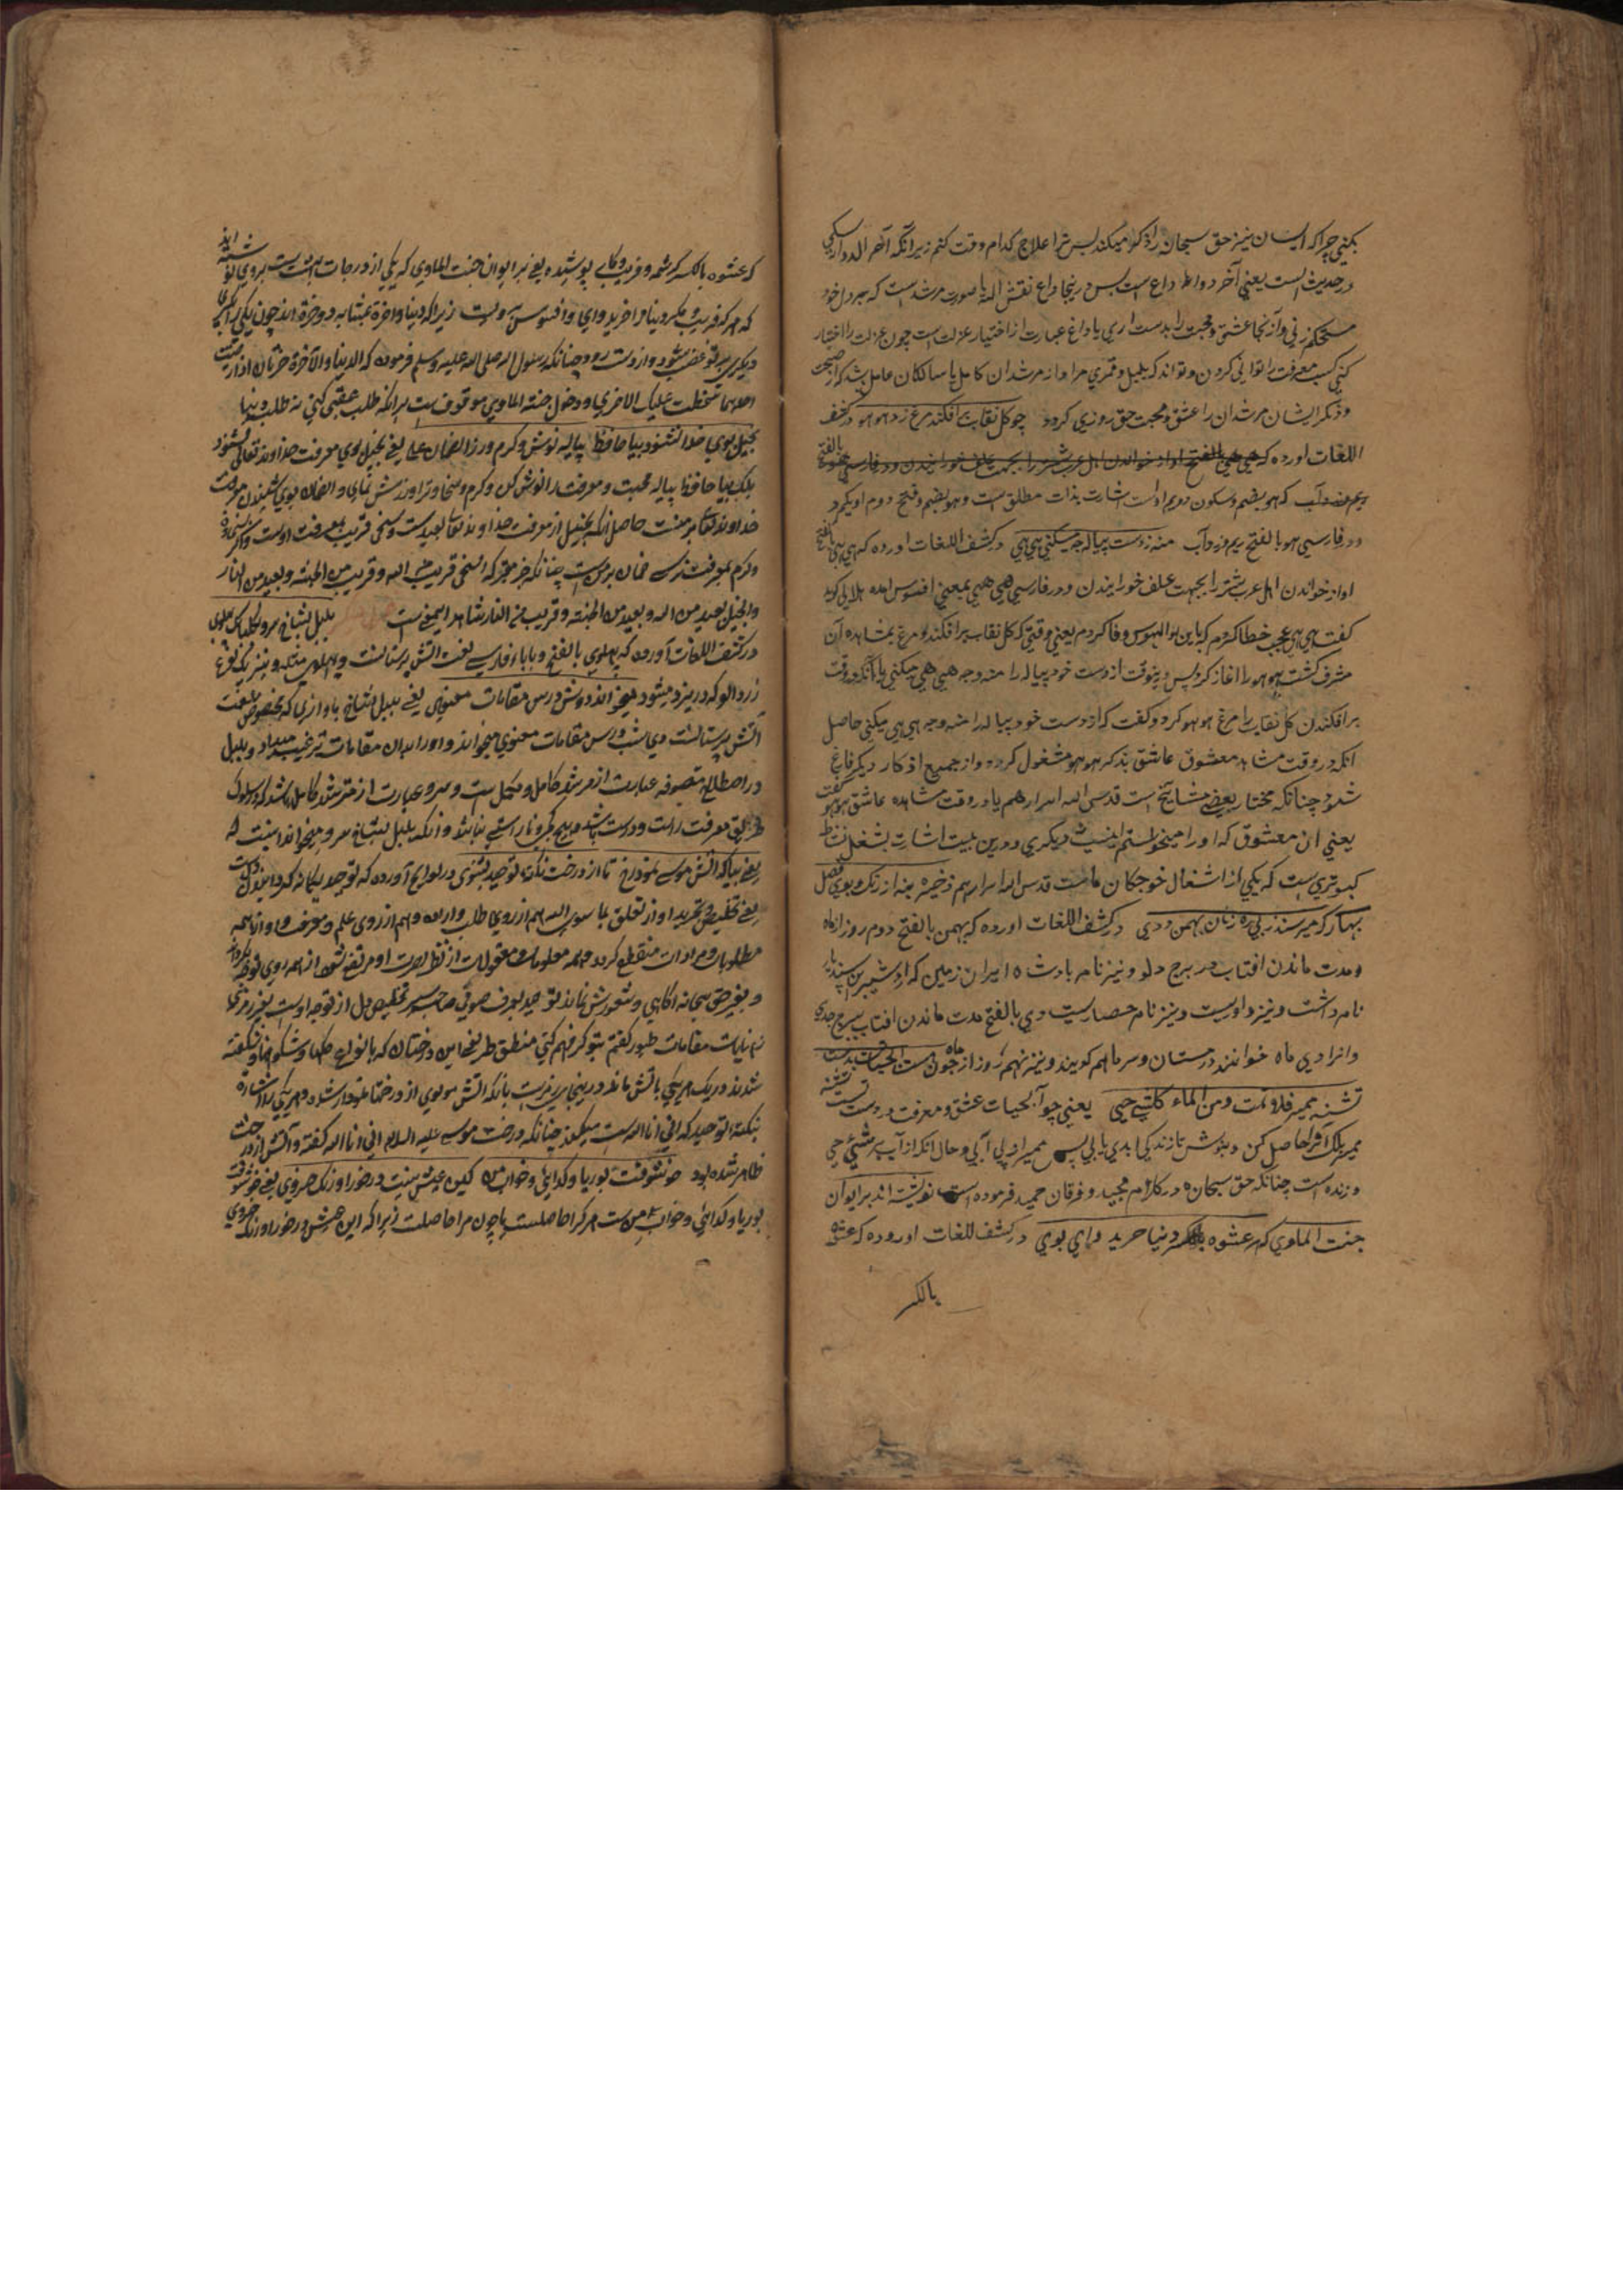 بکنی چرا که ایشان نیز حق سبحانه را ذکر میکند پس ترا علاج کدام وقت کنم زیرا نکه آخر الدواء الکی
در حدیث است یعنی آخر دواها داغ است پس درینجا داغ نقش الله یا صورت مرشد است که بر دل خود
مستحکم زنی و از آنجا عشق و محبت را بدست اری یا داغ عبارت از اختیار عزلت است چون عزلت را اختیار
کنی کسب معرفت را توانی کردن و تواند که بلبل و قمری مراد از مرشدان کامل یا سالکان عامل باشد که از صحبت
و ذکر ایشان مرشدان را عشق و محبت حق روزی کردد چو کل نقاب برافکند مرغ زد هو هو در کشف
اللغات اورده که
که هو بضم و سکون دوم او است اشارت بذات مطلق است و هو بضم و فتح دوم او یکمرد
و در فارسی هو بالفتح ریم و زردآب منه ز دست پیاله چه میکنی هی هی در کشف اللغات اورده که هی هی بالفتح
اواز خواندن اهل عرب شتر را بجهت علف خورانیدن و در فارسی هی هی بمعنی افسوس امده هلالی کوید
کفت هی هی عجب خطا کردم که باین بوالهوس وفا کردم یعنی وقتی که کل نقاب برافکند و مرغ بمشاهده آن
مشرف کشت هو هو را اغاز کرد پس درینوقت از دست خود پیاله را منه و چه هی هی میکنی یا آنکه در وقت
برافکندن کل نقاب را مرغ هو هو کرد و کفت که از دست خود پیاله را منه و چه هی هی میکنی حاصل
انکه در وقت مشاهده معشوق عاشق بذکر هو هو مشغول کردد و از جمیع اذکار دیکر فارغ
شود چنانکه مختار بعضی مشایخ است قدس الله اسرارهم یا در وقت مشاهده عاشق هو هو کفت
یعنی ان معشوق که او را میخواستم اینست دیکری و درین بیت اشارت بشغل
کبوتری است که یکی از اشغال خوجکان ماست قدس الله اسرارهم ذخیره بنه از رنک و بوی فصل
بهار که میرسند ز پی ره زنان بهمن و دی در کشف اللغات اورده که بهمن بالفتح دوم روز از ماه
و مدت ماندن افتاب در برج دلو و نیز نام بادشاه ایران زمین که اردشیر بن اسفندیار
نام داشت و نیز داروییست و نیز نام حصاریست دی بالفتح مدت ماندن افتاب ببرج جدی
و انرا دی ماه خوانند و زمستان و سرما هم کویند و نیز نهم روز از ماه چو هست آب حیات بدست
تشنه ممیر فلا تمت و من الماء کل شیء حی یعنی چو آبحیات عشق و معرفت در دست تست تشنه
ممیر بلک آنرا حاصل کن و بنوش تا زندکی ابدی یابی پس ممیر از بی آبی و حال انکه از آب هر شیئ حی
و زنده است چنانکه حق سبحانه در کلام مجید و فرقان حمید فرموده است نوشته اند بر ایوان
جنت الماوی که هر که عشوه دنیا خرید وای بوی در کشف اللغات اورده که عشوه
بالکسر
که عشوه بالکسر کرشمه و فریب و کاری پوشیده یعنی بر ایوان جنت الماوی که یکی از درجات بهشت است نوشته اند
که هر که فریب و مکر دنیا را خرید وای و افسوس بر ویست زیرا که دنیا و اخرة بمثابه دو حرة اند چون یکی را بکیری
دیکری بر تو غضب شود و از دست رود چنانکه رسول الله صلی الله علیه وسلم فرموده که الدنیا والآخرة ضرتان اذا رضیت
احدهما سخطت علیک الاخری و دخول جنة الماوی موقوف است برانکه طلب عقبی کنی نه طلب دنیا
بخیل بوی خدا نشنود بیا حافظ پیاله نوش و کرم ورز الضمان علی یعنی بخیل بوی معرفت خداوند تعالی نشنود
بلک بیا حافظ پیاله محبت و معرفت را نوش کن و کرم و سخاوت را ورزش نمای و الضمان بوی شنیدن معرفت
خداوند تعالی بر منست حاصل انکه بخیل از معرفت خداوند تعالی بعید است و سخی قریب بمعرفت اوست
و کرم بمعرفت رسی ضمان بر من است چنانکه خبر مخبر که السخی قریب من الله و قریب من الجنة و بعید من النار
والبخیل بعید من الله و بعید من الجنة و قریب من النار شاهد اینمعنی است بلبل بشاخ سرو بکلبانک پهلوی
در کشف اللغات آورده که پهلوی بالفتح و با باء فارسی لغت اتش پرستانست و نیز یک نوع
زرد الو که در یزد میشود میخواند دوش درس مقامات معنوی یعنی بلبل بشاخ باوازی که مخصوص بلغت
آتش پرستانست دی شب درس مقامات معنوی میخواند و اورا بدان مقامات ترغیب میداد و بلبل
در اصطلاح متصوفه عبارت از مرشد کامل و مکمل است و سرو عبارت از مسترشد کامل باشد که در سلوک
طریق معرفت راست و درست باشد و هیچ کجی و ناراستی نباشد و آنکه بلبل بشاخ سرو میخواند اینست که
یعنی بیا که اتش موسی نمود کل تا از درخت نکته توحید بشنوی در لوایح آورده که توحید یکانه کردانیدن دل است
یعنی تخلیص و تجرید او از تعلق بما سوی الله هم از روی طلب و ارادت و هم از روی علم و معرفت
مطلوبات و مرادات منقطع کردد و همه معلومات و معقولات از نظر بصیرت او مرتفع شود از همه روی توجه بکرداند
و بغیر حق سبحانه اکاهی و شعورش نماند توحید بعرف صوفی صاحب سیر تخلیص دل از توجه اوست بغیر رمزی
ز نهایات مقامات طیور کفتم بتو کر فهم کنی منطق طیر یعنی این درختان که بانواع کلها و شکوفها شکفته
شدند و در یک هر یکی باتش ماند درینجا بانکه اتش موسوی از درختها نمودار شد و هر یکی اشاره
بنکته توحید که انی انا الله است میکند چنانکه درخت موسی علیه السلام انی انا الله کفته و آتش از درخت
ظاهر شده بود خوشوقت بوریا و کدایی و خواب امن کین عیش نیست در خور اورنک خسروی یعنی خوشوقت
بوریا و کدایی و خواب امن است هر کرا حاصلست یا چون مرا حاصلست زیرا که این عیش در خور اورنک خسروی